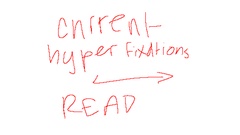 current
hyper fixations
READ